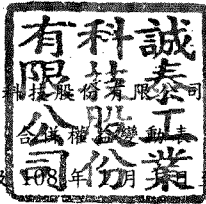 誠泰工業
科技股份
有限公司
科技股份有限公司
合併權益變動表
108 年 月 日